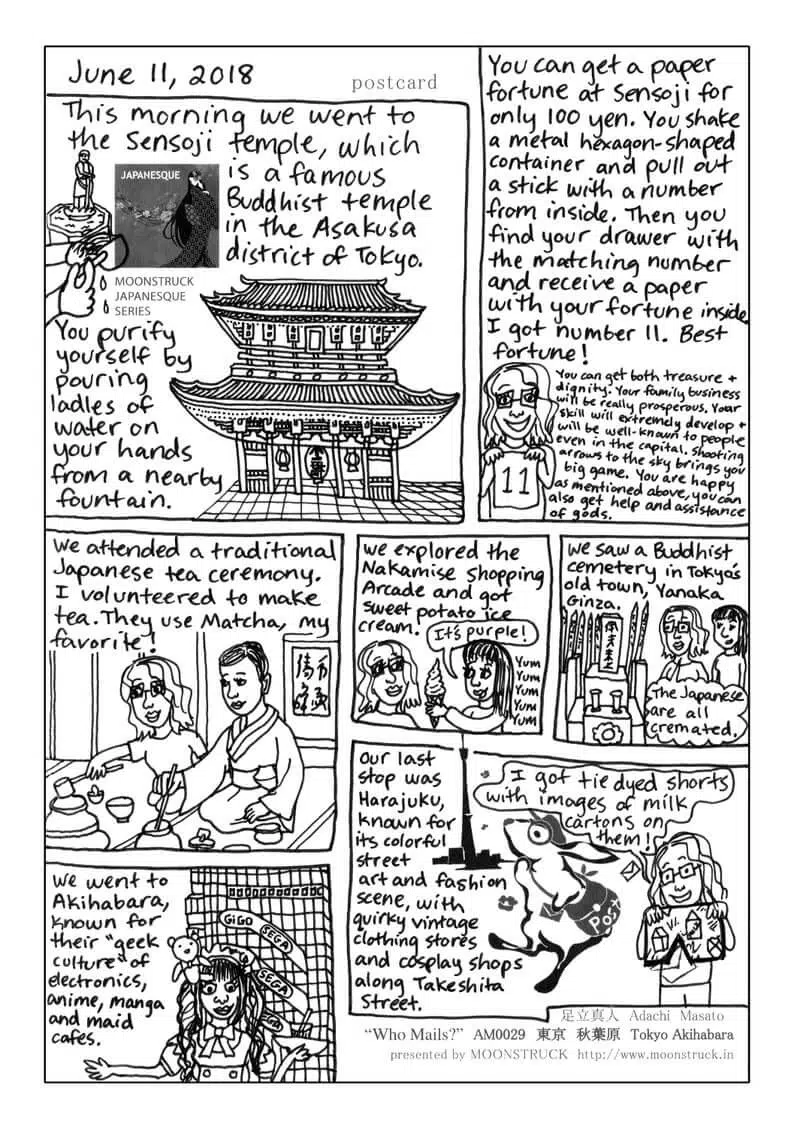 June 11, 2018
postcard
This morning we went to
the Sensoji temple, which
is a famous
Buddhist temple
in the Asakusa
district of Tokyo.
JAPANESQUE
MOONSTRUCK
JAPANESQUE
SERIES
You purify
yourself by
pouring
ladles of
water on
your hands
from a nearby
fountain.
You can get a paper
fortune at Sensoji for
only 100 yen. You shake
a metal hexagon-shaped
container and pull out
a stick with a number
from inside. Then you
find your drawer with
the matching number
and receive a paper
with your fortune inside.
I got number 11. Best
fortune!
You can get both treasure +
dignity. Your family business
will be really prosperous. Your
skill will extremely develop +
will be well-known to people
even in the capital. Shooting
arrows to the sky brings you
big game. You are happy
as mentioned above, you can
also get help and assistance
of gods.
11
We attended a traditional
Japanese tea ceremony.
I volunteered to make
tea. They use Matcha, my
favorite!
We explored the
Nakamise Shopping
Arcade and got
sweet potato ice
cream.
It's purple!
Yum
Yum
Yum
Yum
Yum
We saw a Buddhist
cemetery in Tokyo's
old town, Yanaka
Ginza.
The Japanese
are all
cremated.
We went to
Akihabara,
known for
their "geek
culture" of
electronics,
anime, manga
and maid
cafes.
GiGO
SEGA
SEGA
SEGA
Our last
stop was
Harajuku,
known for
its colorful
street
art and fashion
scene, with
quirky vintage
clothing stores
and cosplay shops
along Takeshita
Street.
I got tie dyed shorts
with images of milk
cartons on
them!
Post
足立真人 Adachi Masato
"Who Mails?" AM0029 東京 秋葉原 Tokyo Akihabara
presented by MOONSTRUCK http://www.moonstruck.in